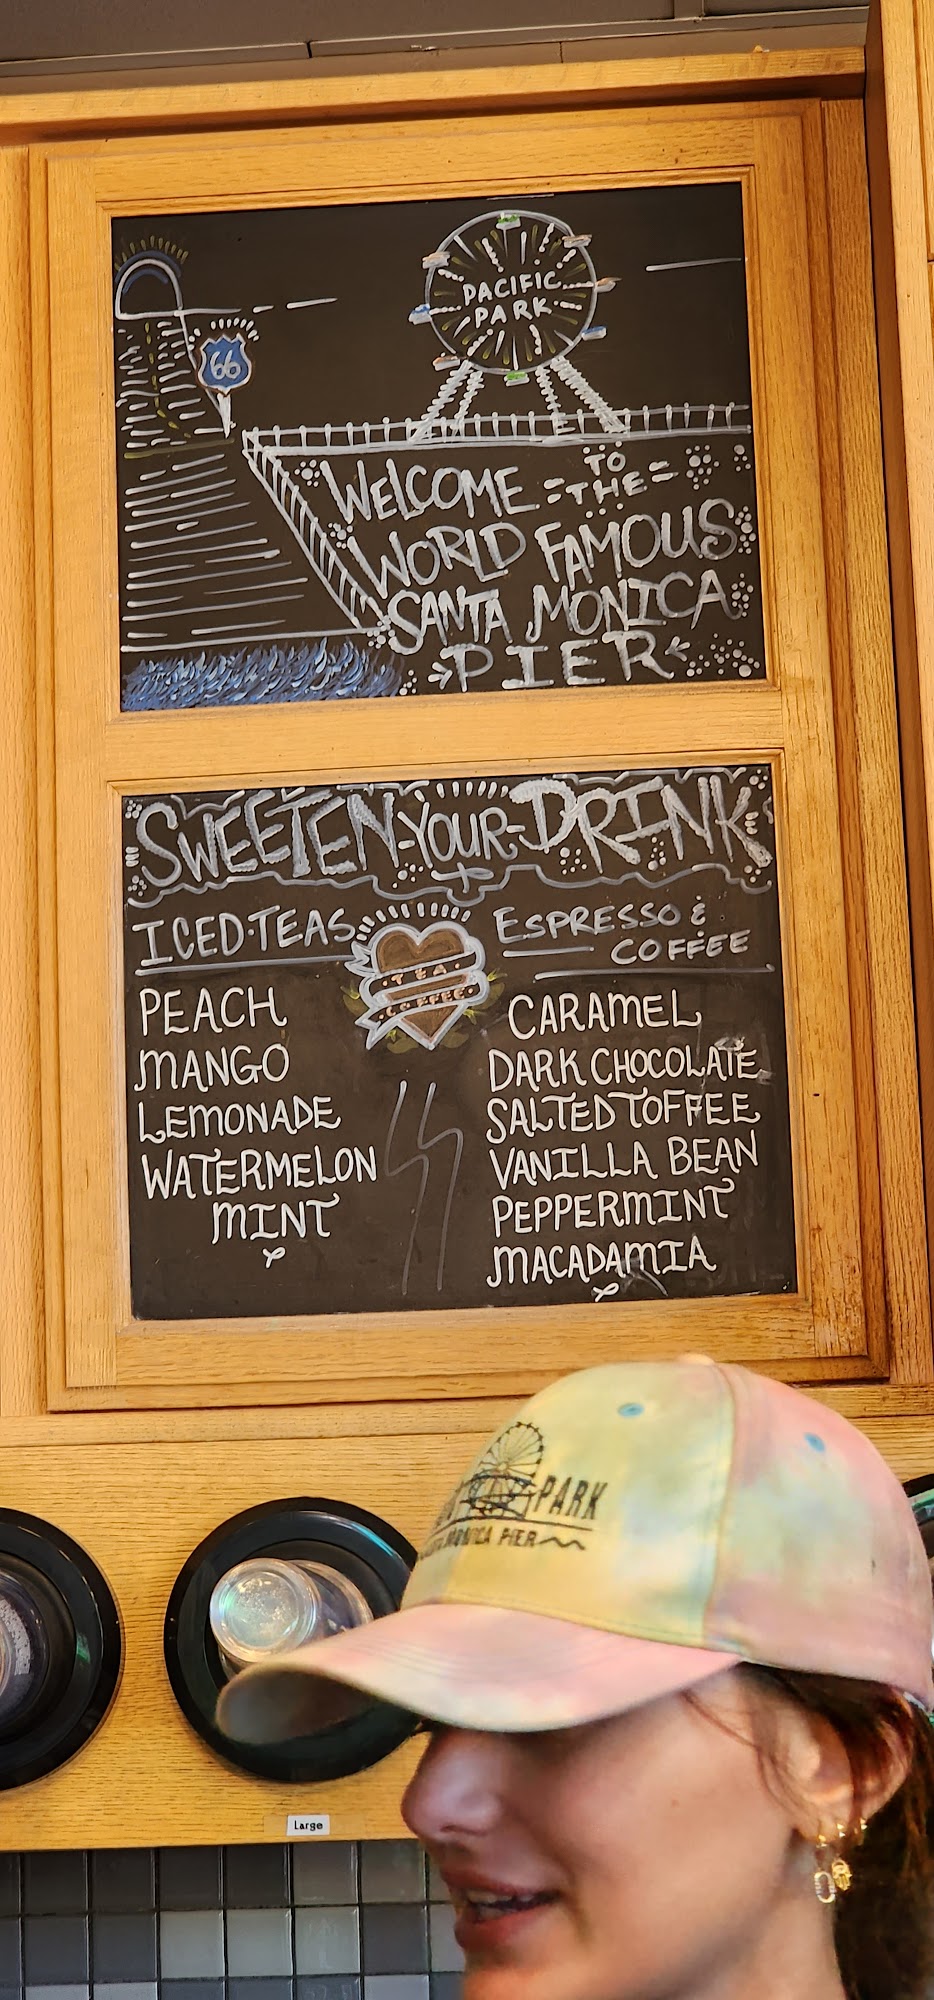 PACIFIC
PARK
66
WELCOME TO THE
WORLD FAMOUS
SANTA MONICA
PIER
SWEETEN-YOUR-DRINK
ICED·TEAS
PEACH
MANGO
LEMONADE
WATERMELON
MINT
·TEA·
·COFFEE·
ESPRESSO &
COFFEE
CARAMEL
DARK CHOCOLATE
SALTED TOFFEE
VANILLA BEAN
PEPPERMINT
MACADAMIA
PARK
MONICA PIER
Large